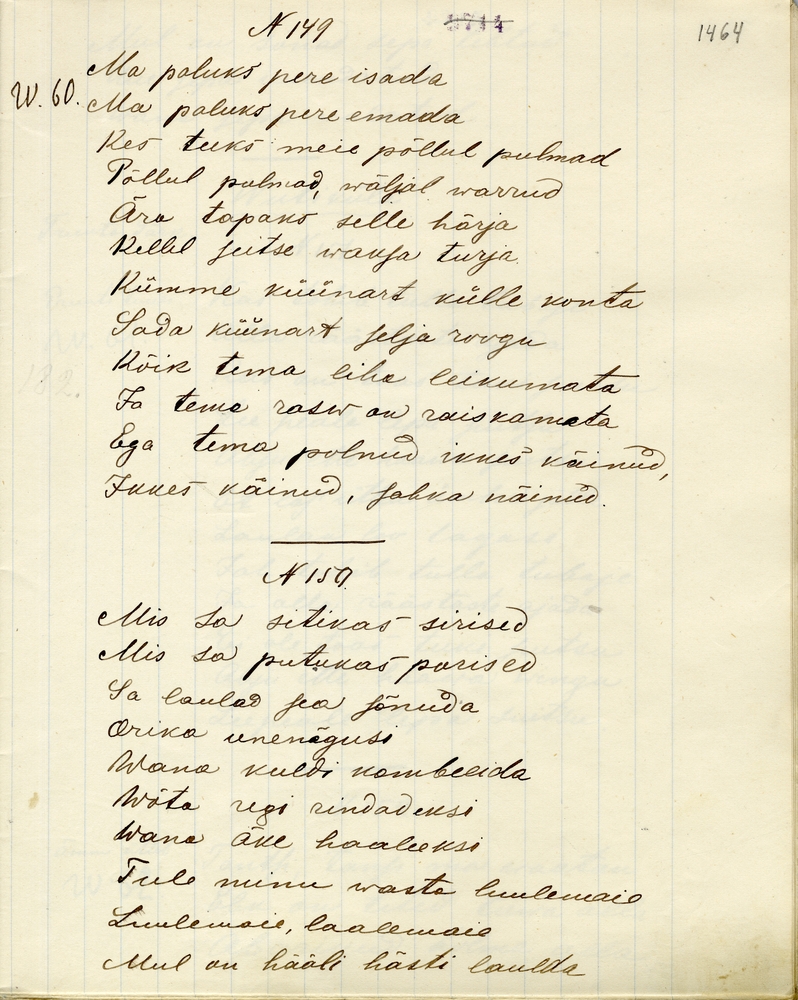 N 149
3744
1464
W. 60.
Ma paluks pere isada
Ma paluks pere emada
Kes teeks meie põllul pulmad
Põllul pulmad, wäljal warrud
Ära tapaks selle härja
Kellel seitse waksa turja
Kümme küünart külle konta
Sada küünart selja roogu
Kõik tema liha leikumata
Ja tema rasw on raiskamata
Ega tema polnud ikkes käinud,
Ikkes käinud, sahka näinud.
N 150
Mis sa sitikas sirised
Mis sa putukas parised
Sa laulad sea sõnuda
Orika unenägusi
Wana kuldi kombeeida
Wõta regi rindadeksi
Wana äke haaleeksi
Tule minu wasta luulemaie
Luulemaie, laalemaie
Mul on hääli hästi laulda